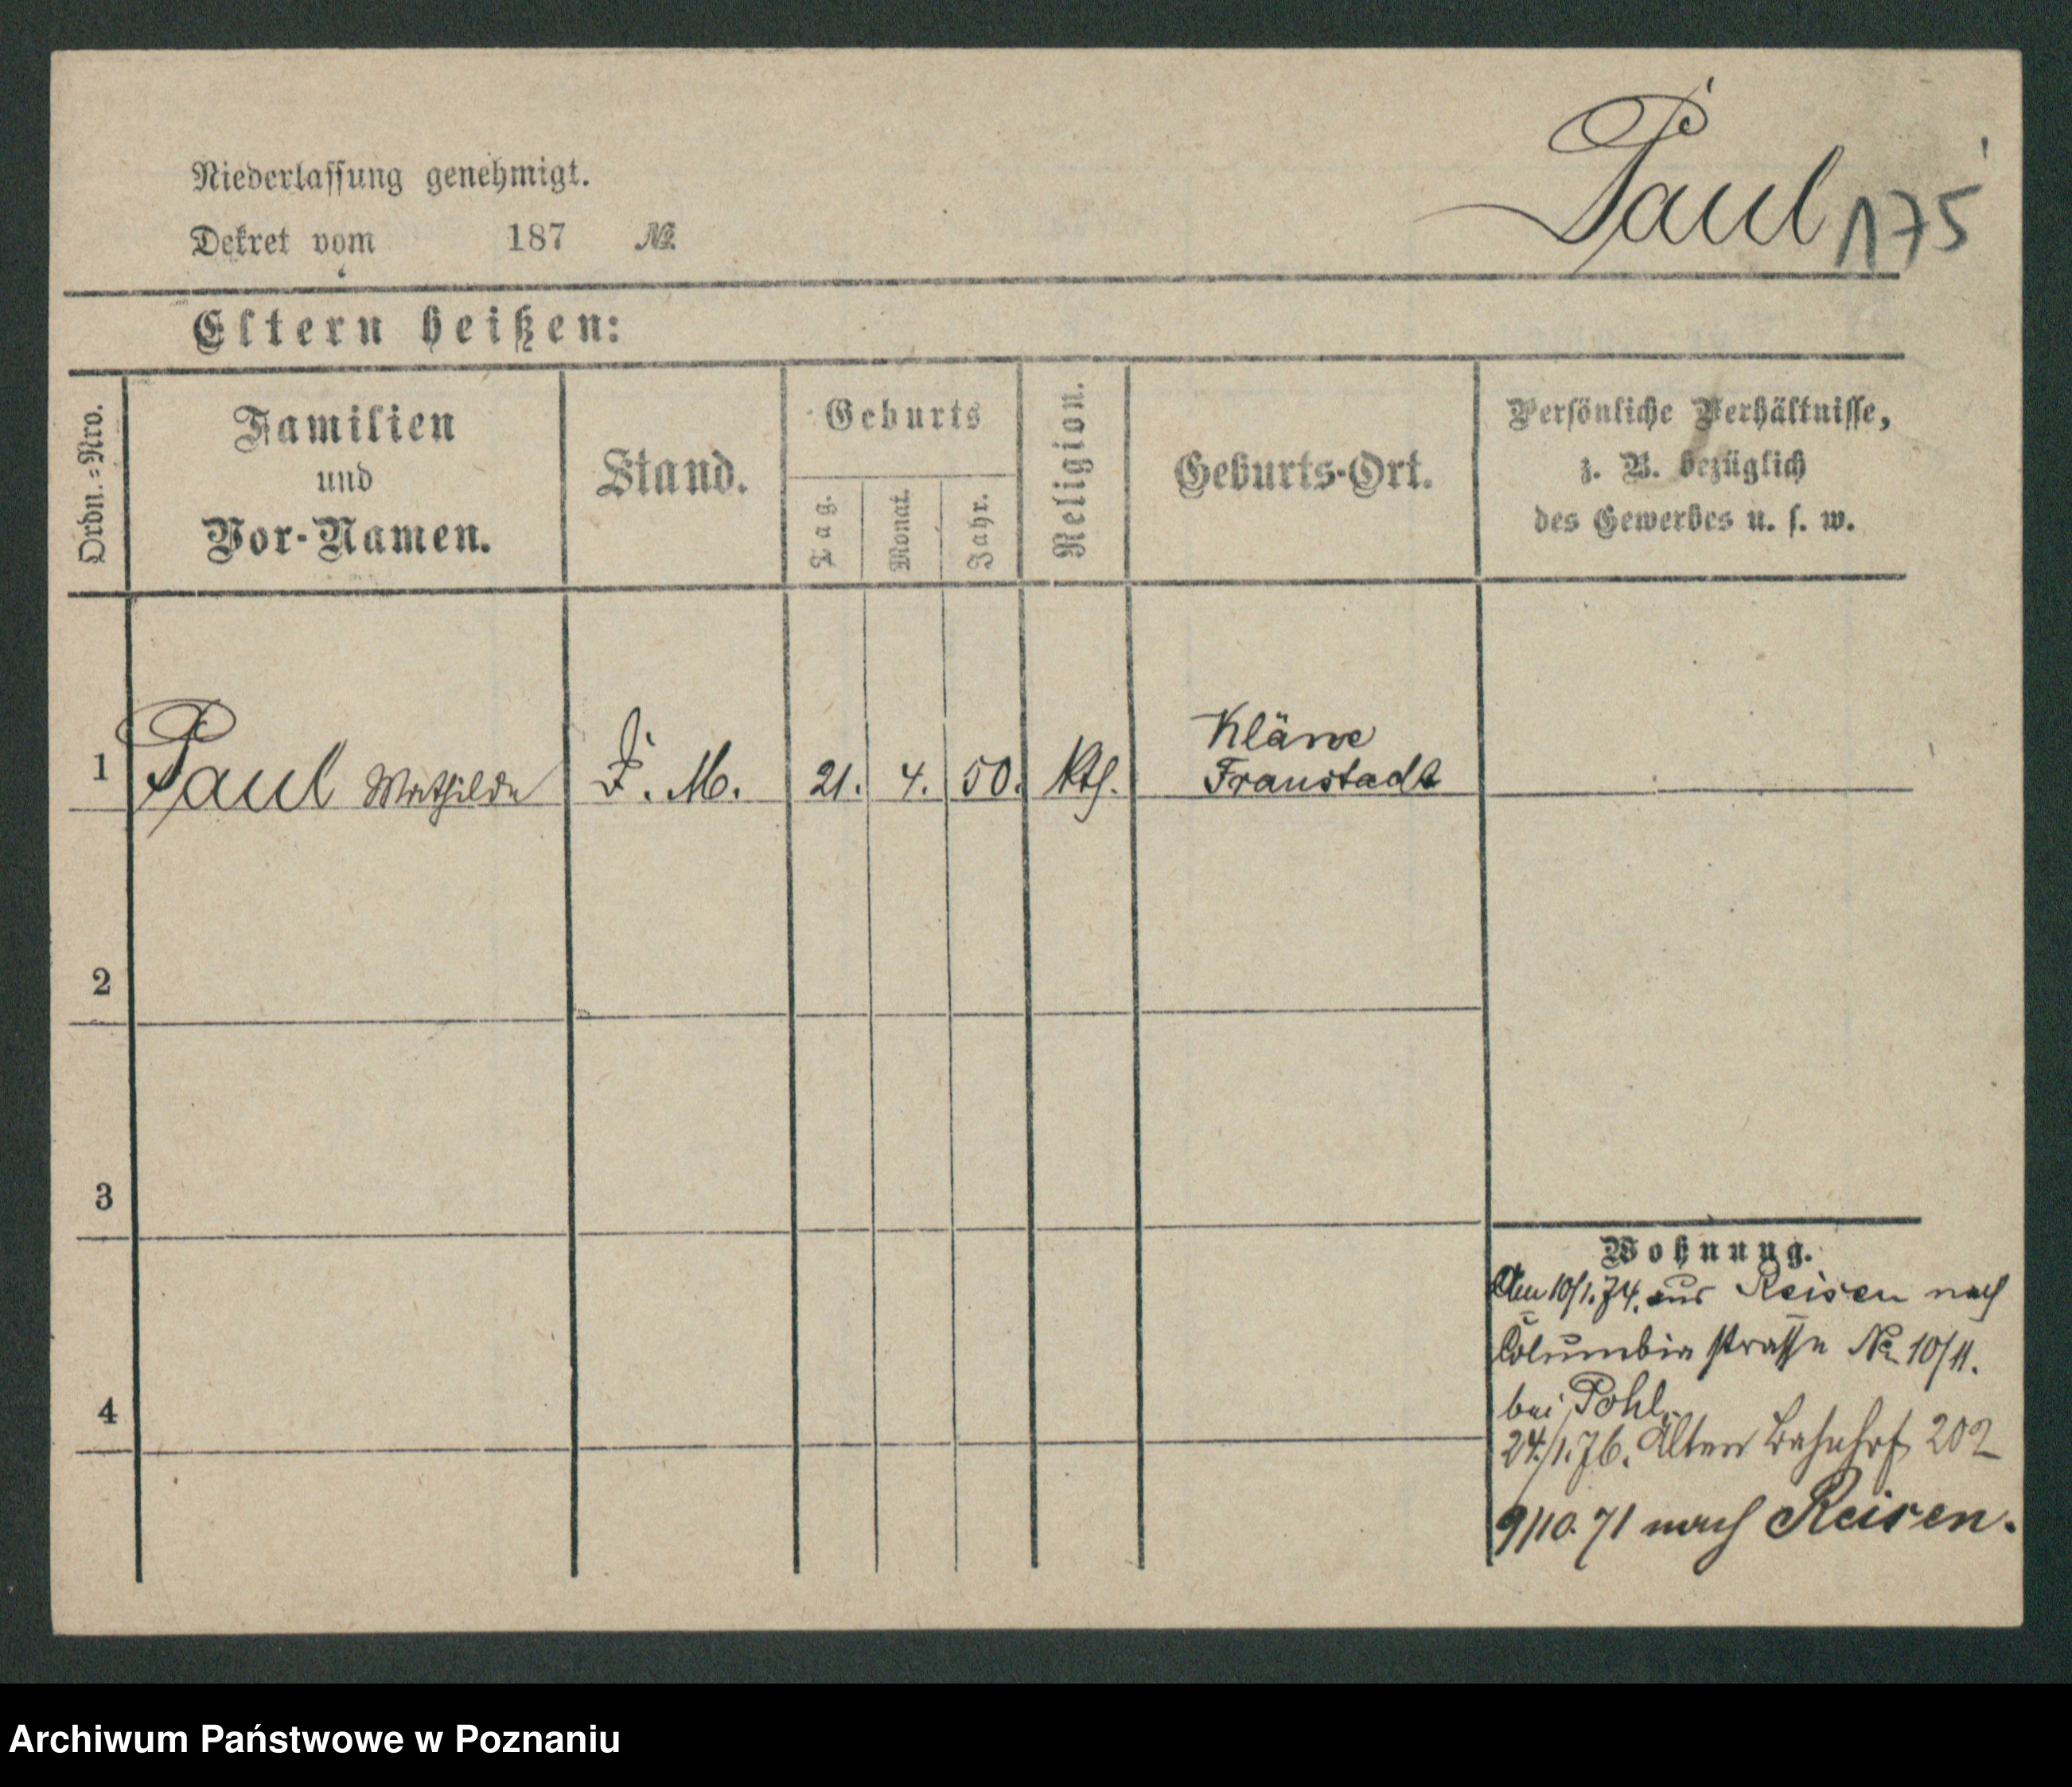 Paul 175
Niederlassung genehmigt.
Dekret vom 187 №
Eltern heißen:
Ordn.=Nro.
Familien
und
Vor-Namen.
Stand.
Geburts
Tag.
Monat.
Jahr.
Religion.
Geburts-Ort.
Persönliche Verhältnisse,
z. B. bezüglich
des Gewerbes u. s. w.
1 Paul Mathilde D. M. 21. 4. 50. Kth. Kläwe
Fraustadt
2
3
4
Wohnung.
Am 10/1.74. aus Reisen nach
Columbia strasse No 10/11.
bei Pohl.
24./1.76. Alten Bahnhof 202
9/10. 71 nach Reisen.
Archiwum Państwowe w Poznaniu